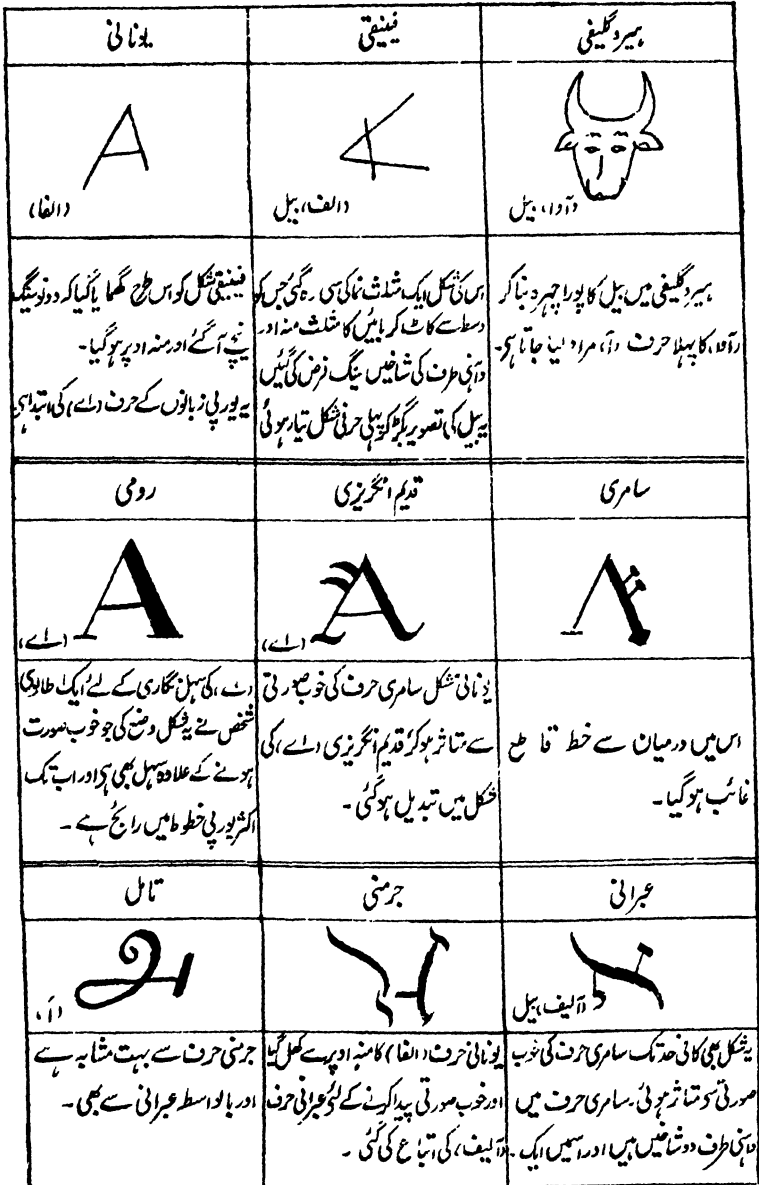 ہیروگلیفی
فینیقی
یونانی
(آوا، بیل
(الف، بیل
(الفا)
ہیروگلیفی میں بیل کا پورا چہرہ بنا کر
(آوا، کا پہلا حرف (آ، مراد لیا جاتا ہی۔
اس کی شکل ایک مثلث نما کی سی رہ گئی جس کو
وسط سے کاٹ کر بائیں کا مثلث منہ اور
داہنی طرف کی شاخیں سینگ فرض کی گئیں
یہ بیل کی تصویر بگڑ کر پہلی حرفی شکل تیار ہوئی
فینیقی شکل کو اس طرح گھمایا گیا کہ دونو سینگ
نیچے آگئے اور منہ اوپر ہو گیا۔
یہ یورپی زبانوں کے حرف (اے، کی ابتدا ہی
سامری
قدیم انگریزی
رومی
(اے)
(اے)
اس میں درمیان سے خط قاطع
غائب ہو گیا۔
یونانی شکل سامری حرف کی خوب صورتی
سے متاثر ہو کر قدیم انگریزی (اے، کی
شکل میں تبدیل ہو گئی۔
(اے، کی سہل نگاری کے لئے ایک اطالوی
شخص نے یہ شکل وضع کی جو خوب صورت
ہونے کے علاوہ سہل بھی ہی اور اب تک
اکثر یورپی خطوط میں رائج ہے۔
عبرانی
جرمنی
تامل
(آلیف، بیل
(آ،
یہ شکل بھی کافی حد تک سامری حرف کی خوب
صورتی سو متاثر ہوئی۔ سامری حرف میں
داہنی طرف دو شاخیں ہیں اور اسمیں ایک۔
یونانی حرف (الفا) کا منہ اوپر سے کھل گیا
اور خوب صورتی پیدا کرنے کے لئے عبرانی حرف
(آلیف، کی اتباع کی گئی۔
جرمنی حرف سے بہت مشابہ ہے
اور بالواسطہ عبرانی سے بھی۔